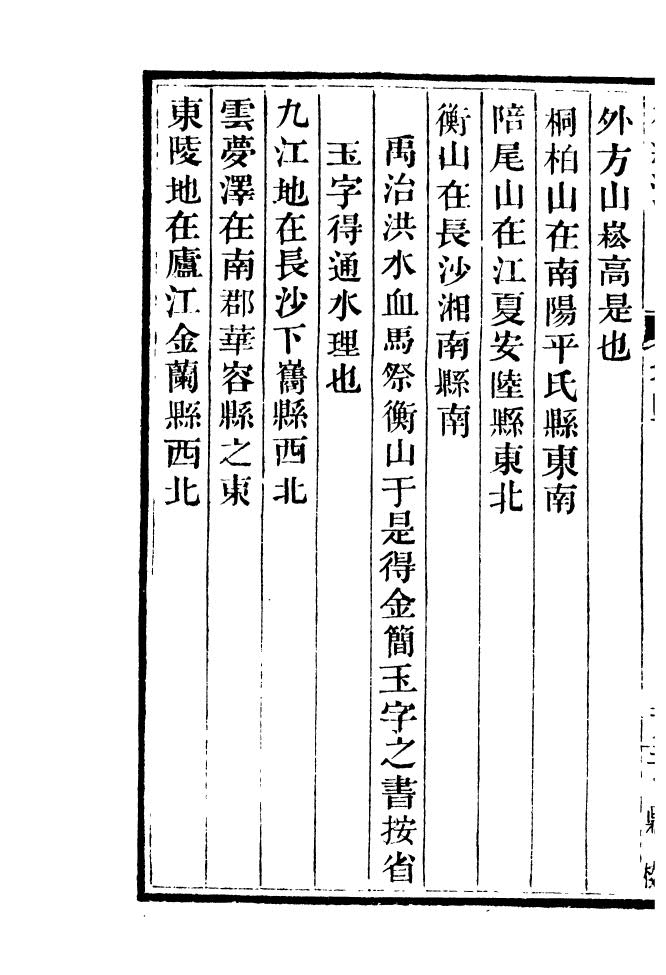 外方山崧高是也
桐柏山在南陽平氏縣東南
陪尾山在江夏安陸縣東北
衡山在長沙湘南縣南
禹治洪水血馬祭衡山于是得金簡玉字之書按省
玉字得通水理也
九江地在長沙下嶲縣西北
雲夢澤在南郡華容縣之東
東陵地在廬江金蘭縣西北